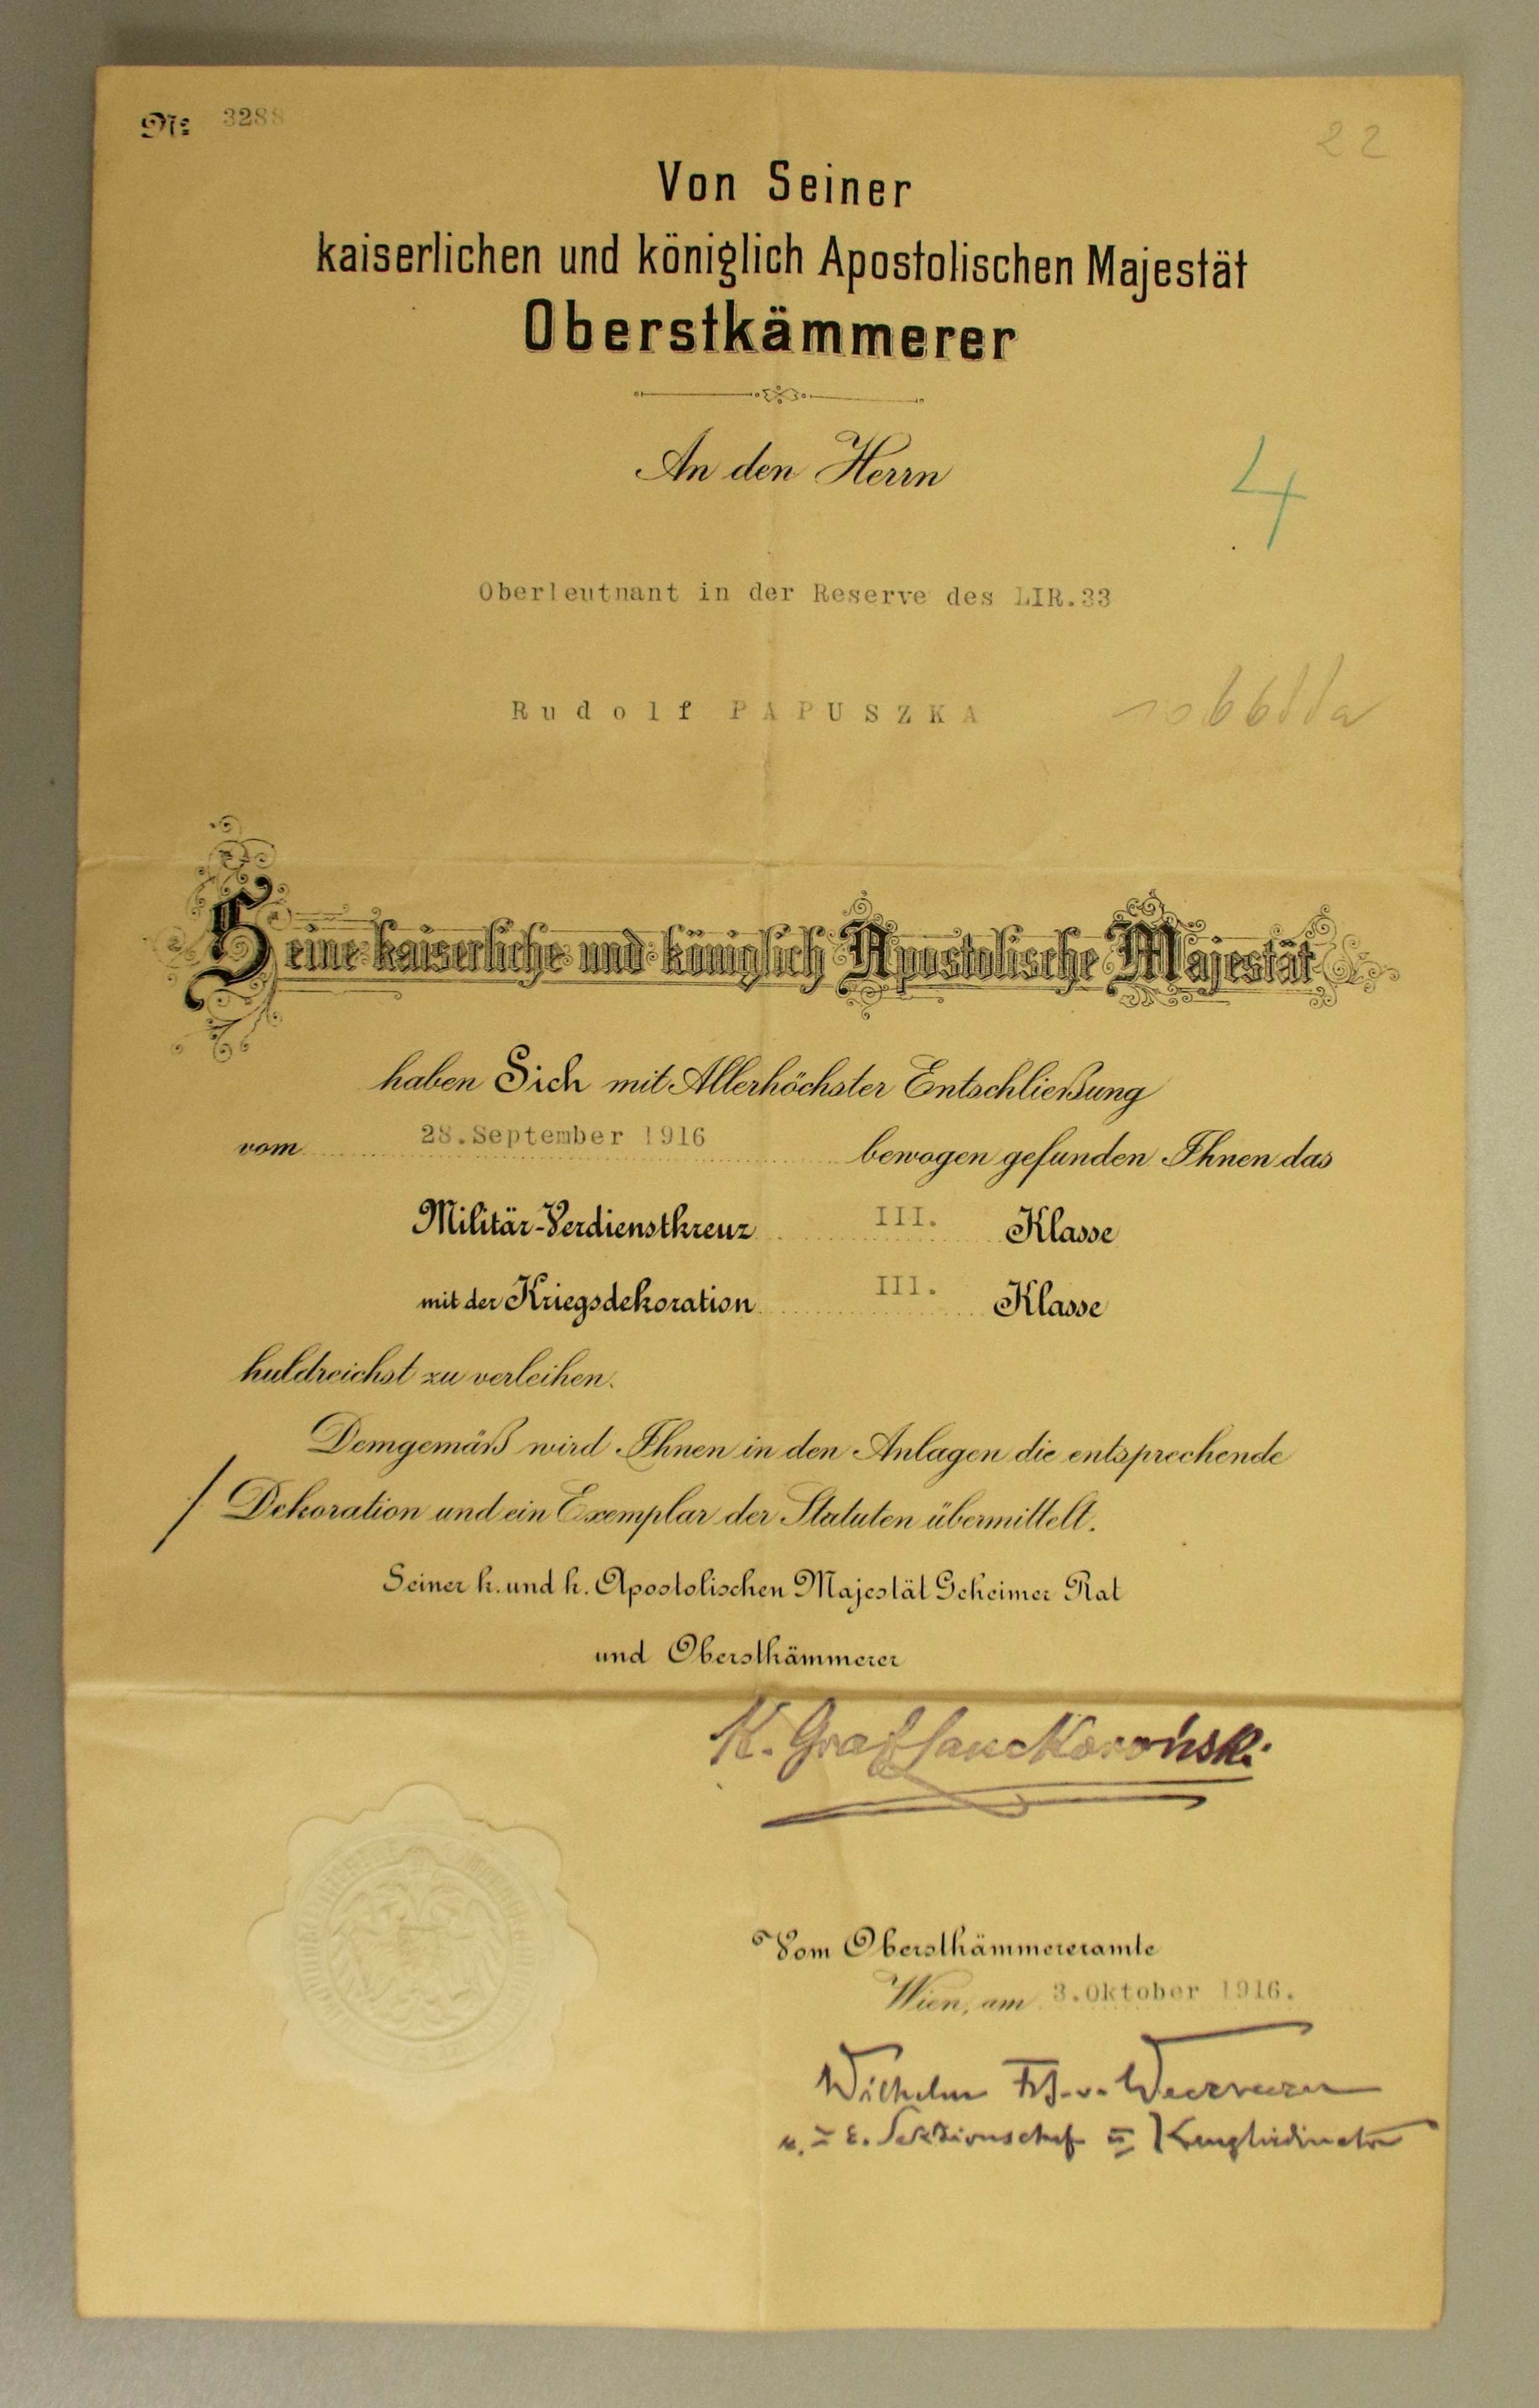 Nr: 3288
22
Von Seiner
kaiserlichen und königlich Apostolischen Majestät
Oberstkämmerer
An den Herrn
4
Oberleutnant in der Reserve des LIR.33
Rudolf PAPUSZKA
Seine kaiserliche und königlich Apostolische Majestät
haben Sich mit Allerhöchster Entschließung
vom 28.September 1916 bewogen gefunden Ihnen das
Militär-Verdienstkreuz III. Klasse
mit der Kriegsdekoration III. Klasse
huldreichst zu verleihen.
Demgemäß wird Ihnen in den Anlagen die entsprechende
/ Dekoration und ein Exemplar der Statuten übermittelt.
Seiner k. und k. Apostolischen Majestät Geheimer Rat
und Oberstkämmerer
K. Graf Lanckoroński
Vom Oberstkämmereramte
Wien, am 3.Oktober 1916.
Wilhelm Frh. v. Weckbecker
Sektionschef u. Kanzleidirektor